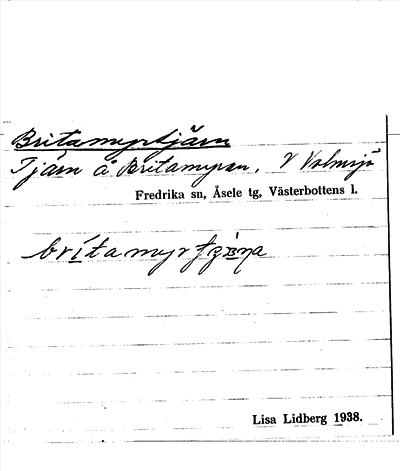 Britamyrtjärn
Tjärn å Britamyran, V Volmsjö
Fredrika sn, Åsele tg, Västerbottens l.
Lisa Lidberg 1938.